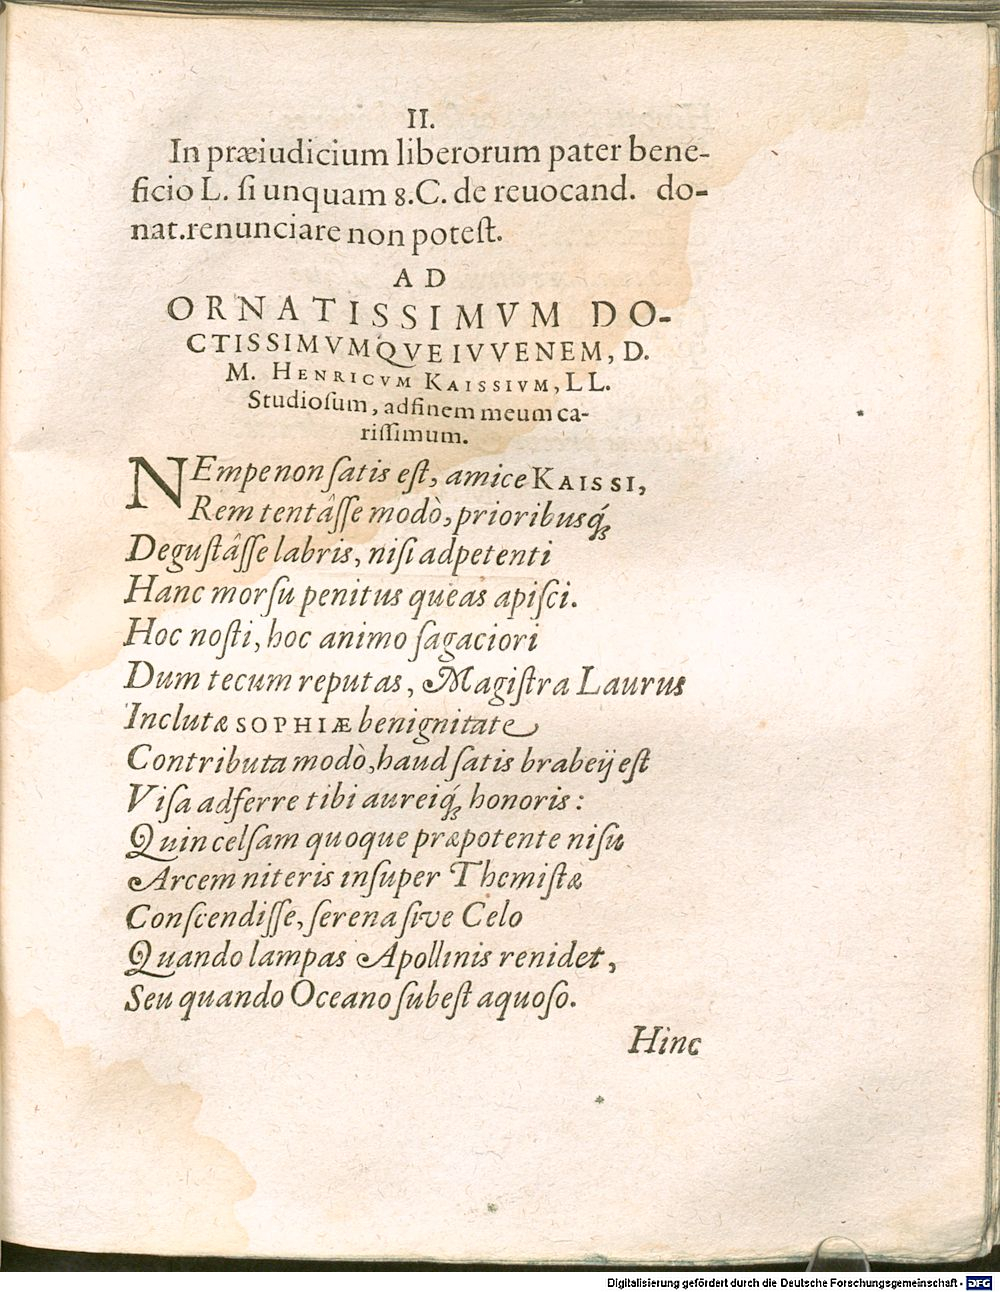 II.
In præiudicium liberorum pater bene-
ficio L. ſi unquam 8.C. de reuocand. do-
nat.renunciare non poteſt.
AD
ORNATISSIMVM DO-
CTISSIMVMQVE IVVENEM, D.
M. HENRICVM KAISSIVM, LL.
Studioſum, adfinem meum ca-
riſſimum.
NEmpe non ſatis eſt, amice KAISSI,
Rem tentâſſe modò, prioribusq́;
Deguſtâſſe labris, niſi adpetenti
Hanc morſu penitus queas apiſci.
Hoc noſti, hoc animo ſagaciori
Dum tecum reputas, Magiſtra Laurus
Inclutæ SOPHIÆ benignitate
Contributa modò, haud ſatis brabeij eſt
Viſa adferre tibi aureiq́; honoris:
Quin celſam quoque præpotente niſu
Arcem niteris inſuper Themiſtæ
Conſcendiſſe, ſerena ſive Celo
Quando lampas Apollinis renidet,
Seu quando Oceano ſubeſt aquoſo.
Hinc
Digitalisierung gefördert durch die Deutsche Forschungsgemeinschaft - DFG